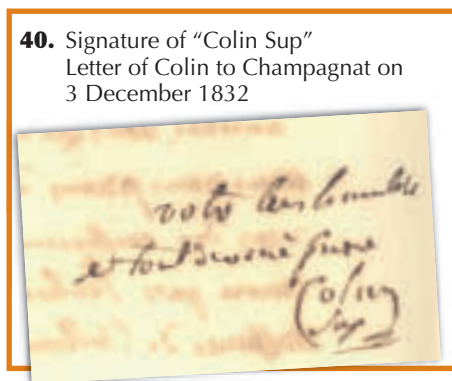 40. Signature of “Colin Sup”
Letter of Colin to Champagnat on
3 December 1832
votre très humble
et tout dévoué
Colin
Sup